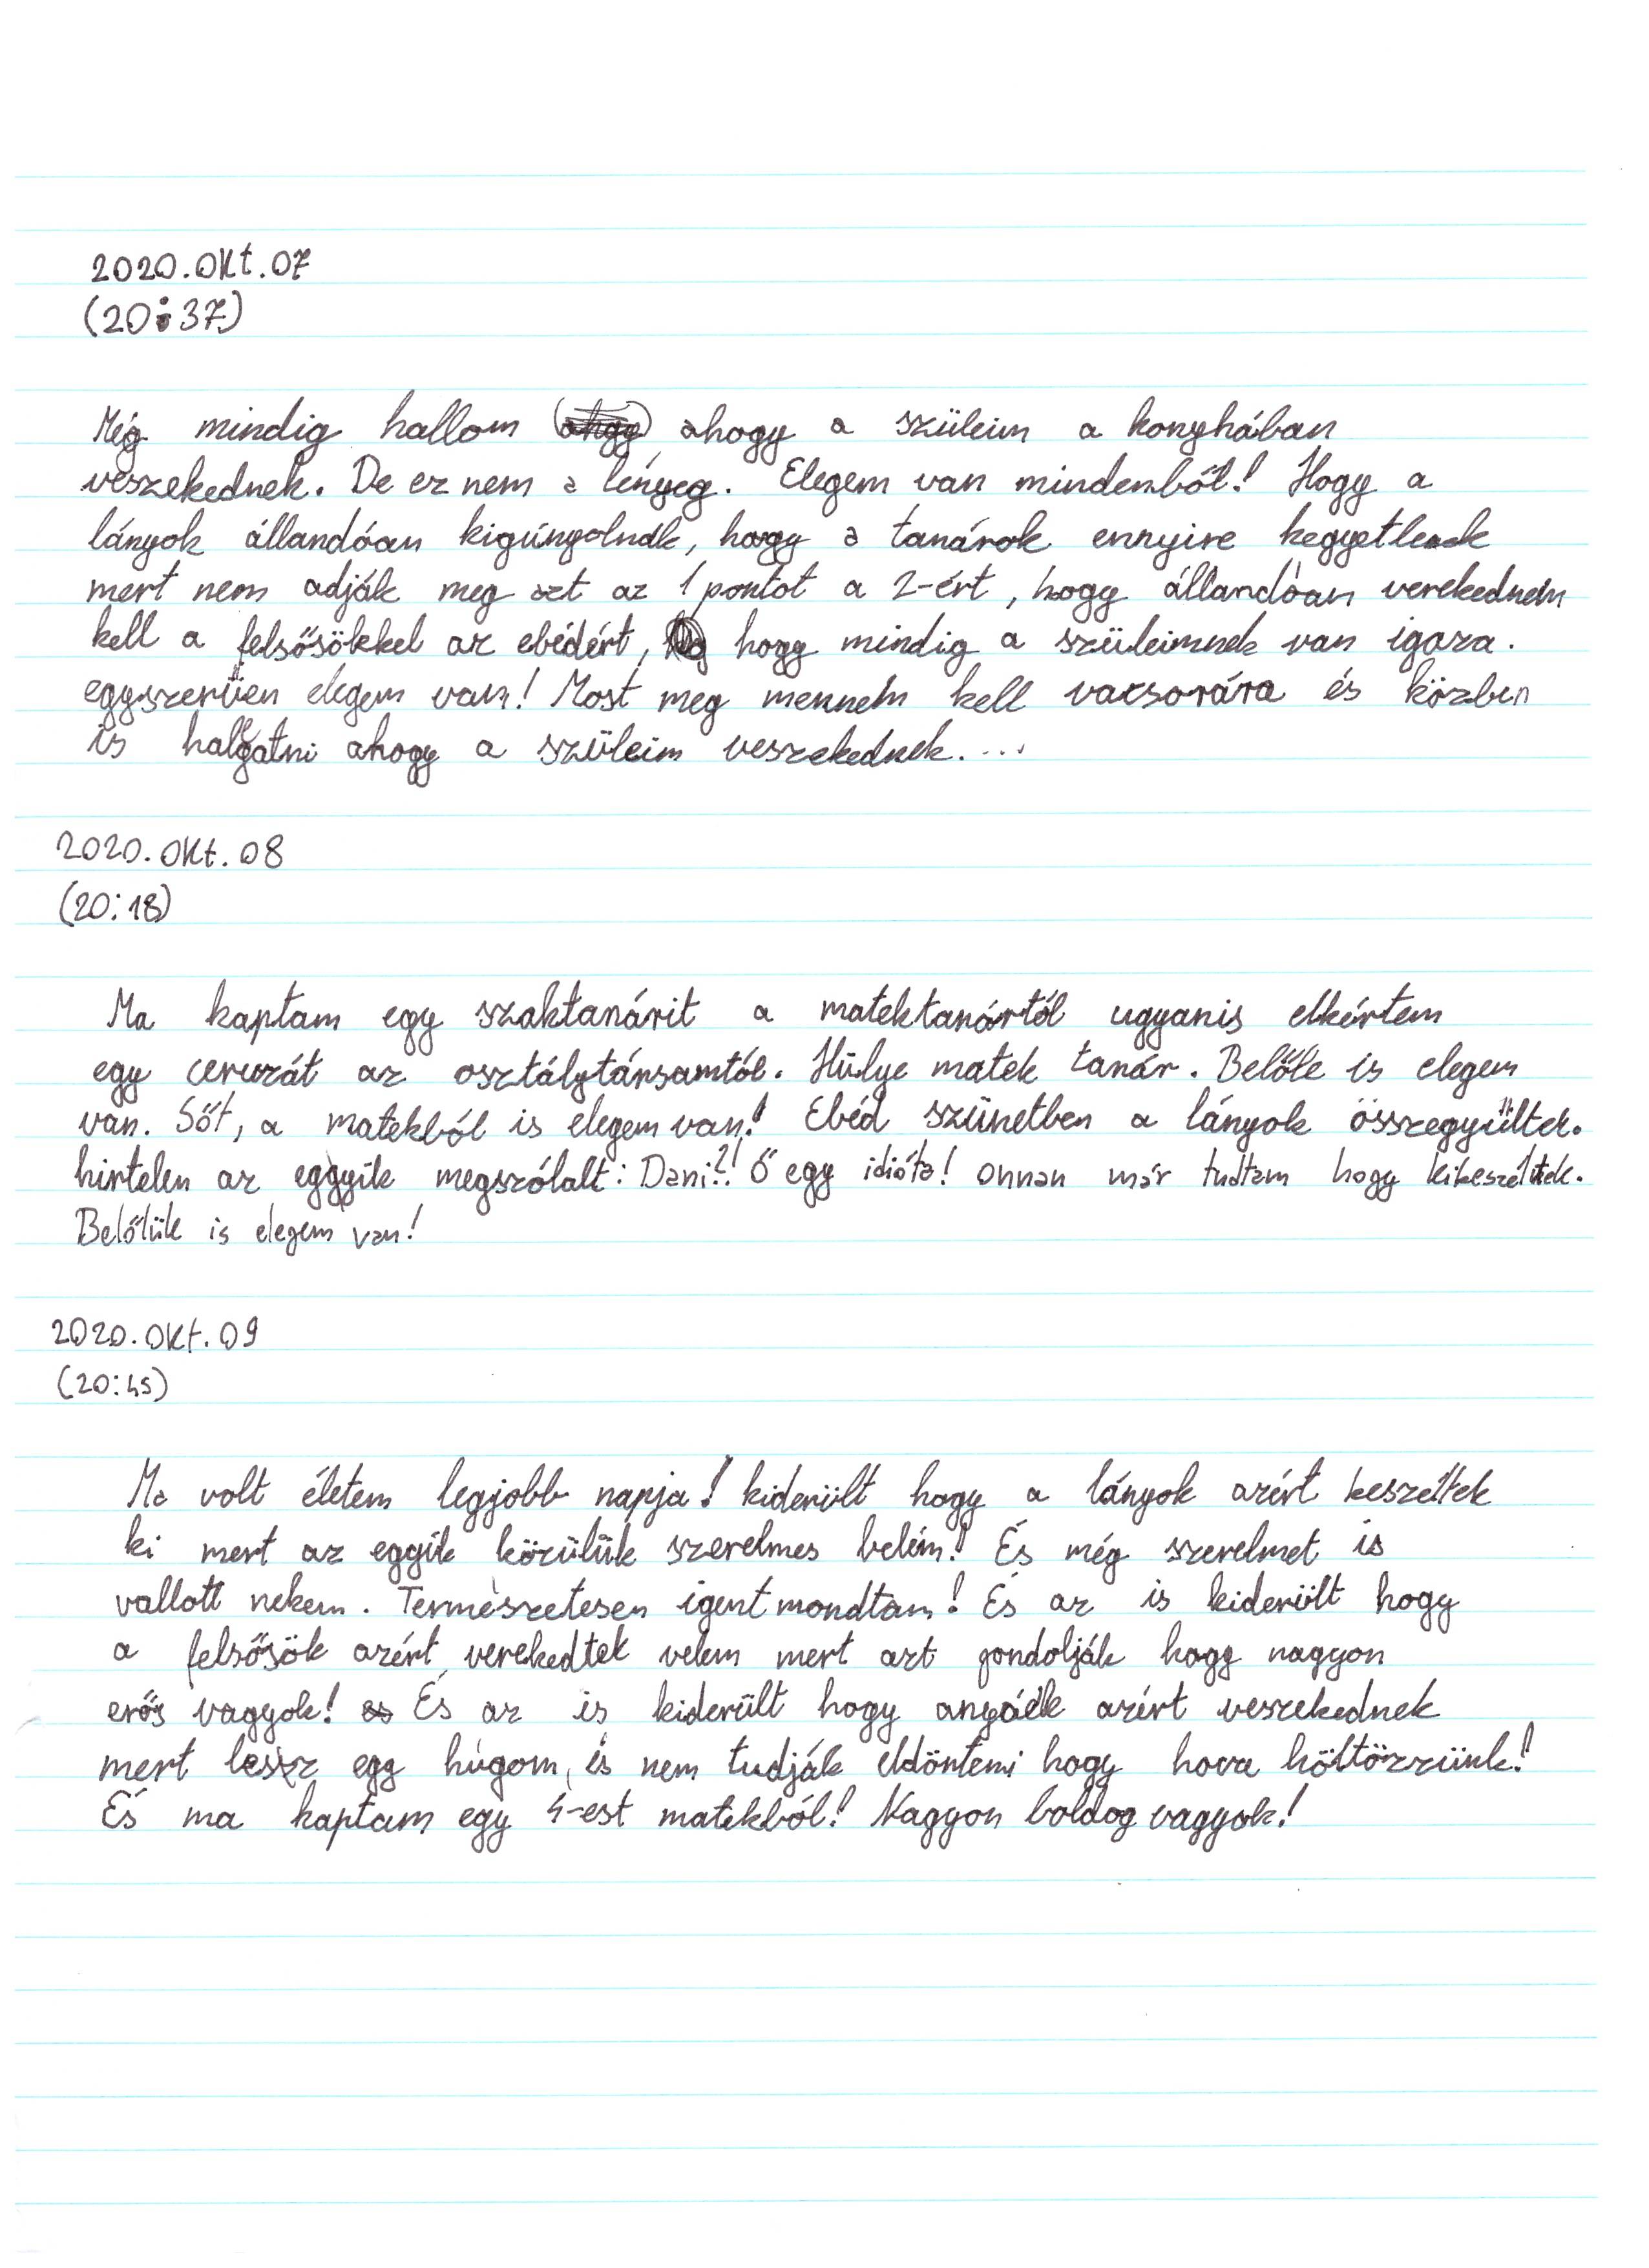 2020.Okt.07
(20:37)
Még mindig hallom ahogy a szüleim a konyhában
veszekednek. De ez nem a lényeg. Elegem van mindenből! Hogy a
lányok állandóan kigúnyolnak, hogy a tanárok ennyire kegyetlenek
mert nem adják meg azt az 1 pontot a 2-ért, hogy állandóan verekednem
kell a felsősökkel az ebédért, hogy mindig a szüleimnek van igaza.
egyszerűen elegem van! Most meg mennem kell vacsorára és közben
is hallgatni ahogy a szüleim veszekednek....
2020.Okt.08
(20:18)
Ma kaptam egy szaktanárit a matektanártól ugyanis elkértem
egy ceruzát az osztálytársamtól. Hülye matek tanár. Belőle is elegem
van. Sőt, a matekból is elegem van! Ebéd szünetben a lányok összegyűltek.
hirtelen az eggyik megszólalt: Dani?! Ő egy idióta! onnan már tudtam hogy kibeszéltek.
Belőlük is elegem van!
2020.Okt.09
(20:45)
Ma volt életem legjobb napja! kiderült hogy a lányok azért beszéltek
ki mert az egyik közülük szerelmes belém! És még szerelmet is
vallott nekem. Természetesen igent mondtam! És az is kiderült hogy
a felsősök azért verekedtek velem mert azt gondolják hogy nagyon
erős vagyok! És az is kiderült hogy anyáék azért veszekednek
mert lessz egy húgom, és nem tudják eldönteni hogy hova költözzünk!
És ma kaptam egy 4-est matekból! Nagyon boldog vagyok!